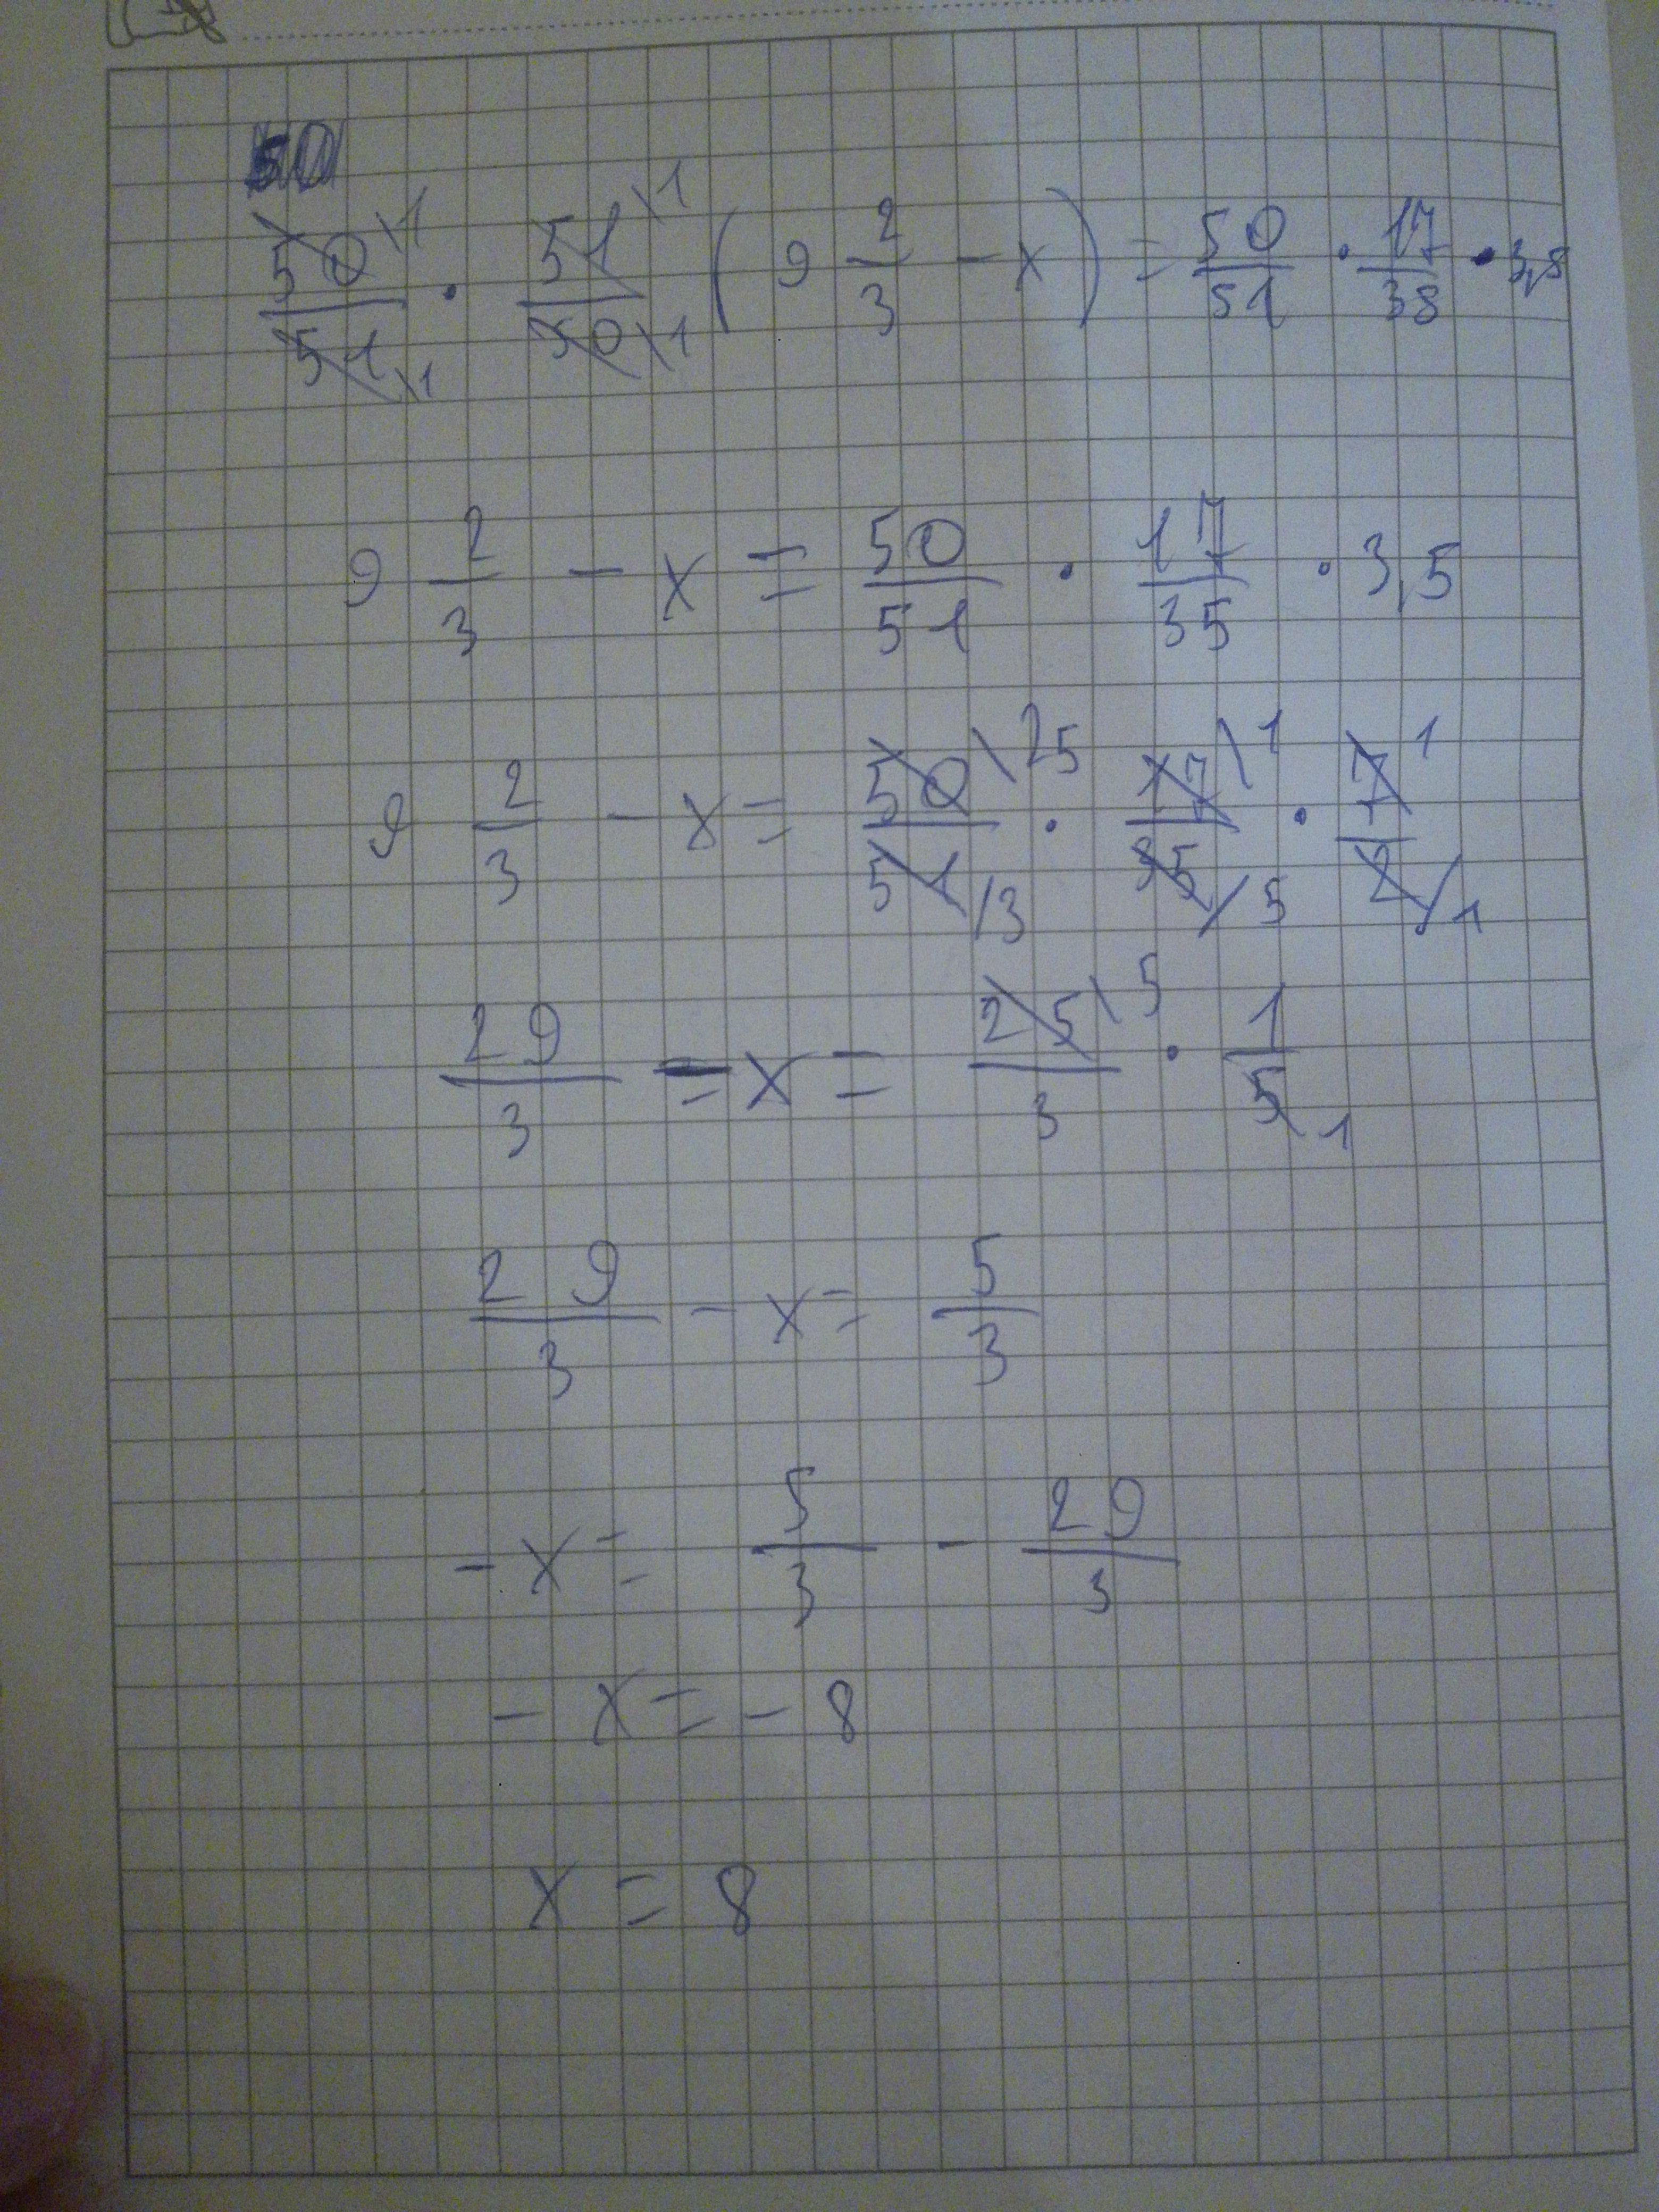 50/51 · 51/50 (9 2/3 - x) = 50/51 · 17/38 · 3,8
9 2/3 - x = 50/51 · 17/35 · 3,5
9 2/3 - x = 50\25/51/3 · 17\1/35/5 · 7 1/2/1
29/3 - x = 25\5/3 · 1/5 1
29/3 - x = 5/3
-x = 5/3 - 29/3
-x = -8
x = 8